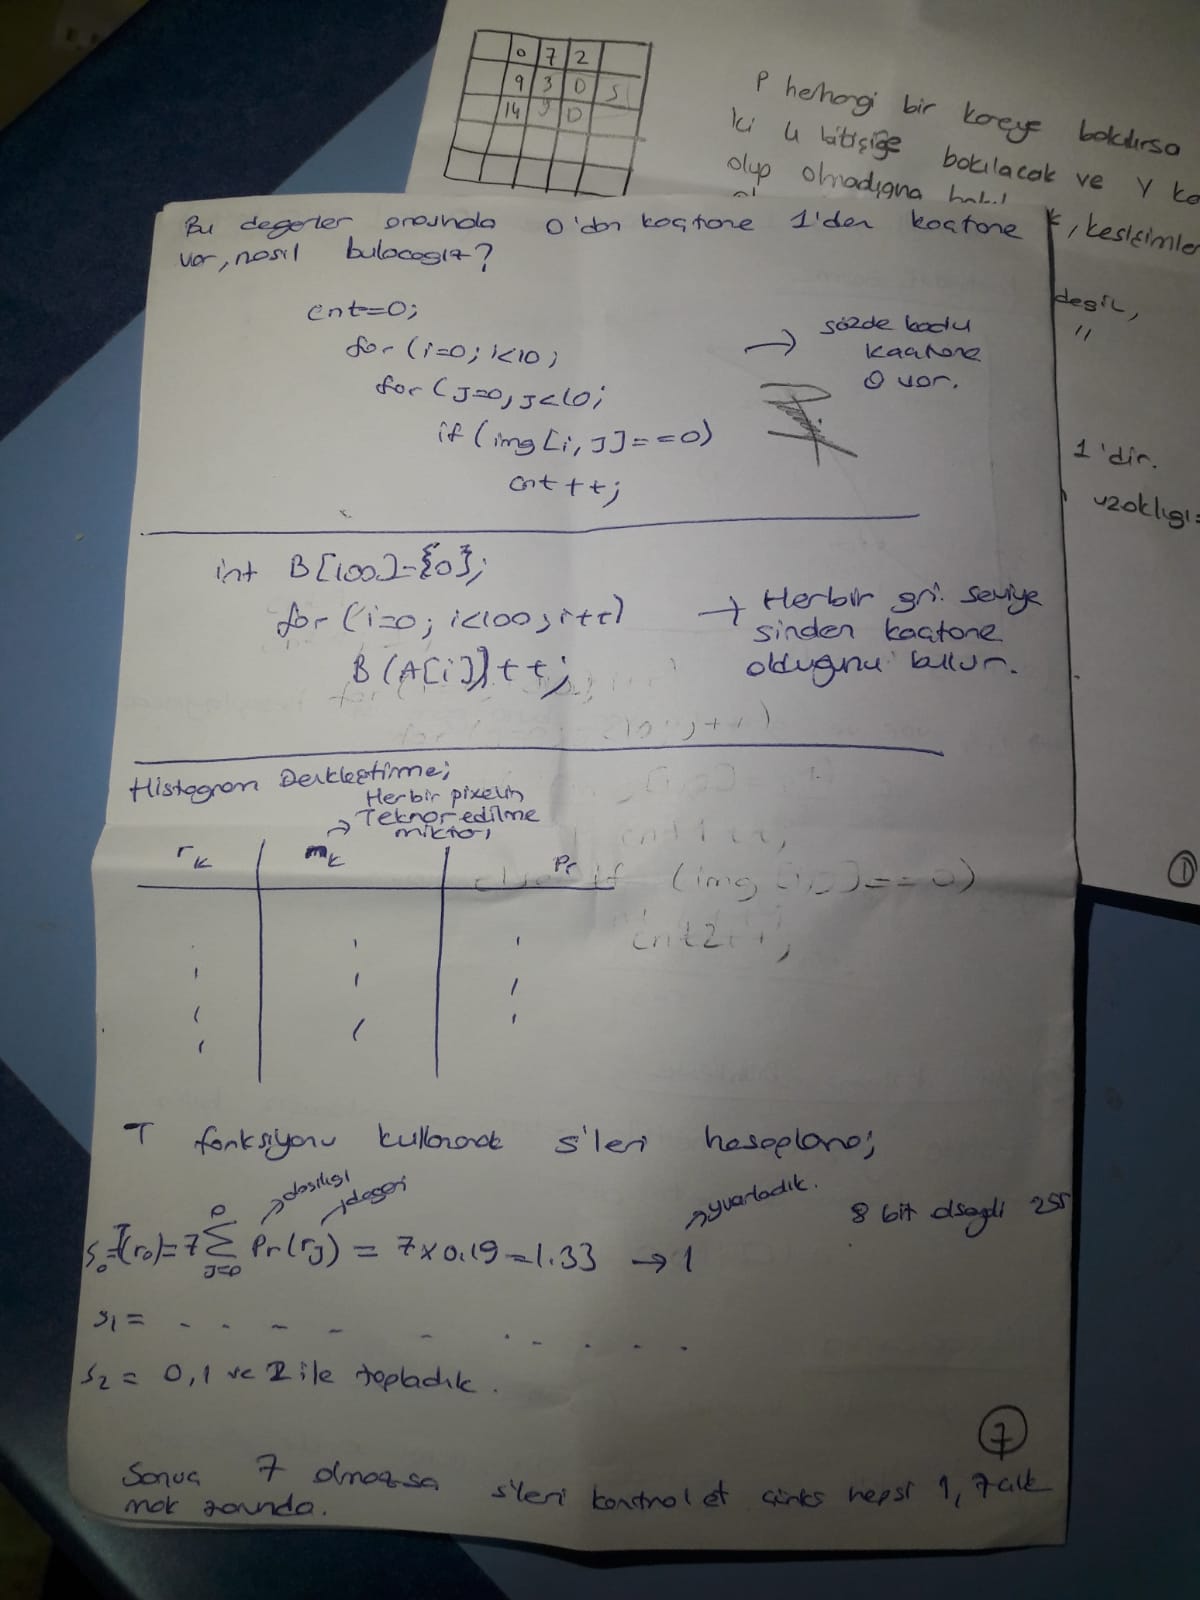 0 7 2
9 3 0 5
14 9 0
P herhangi bir kareye bakılırsa
iki 4 bitişiğe bakılacak ve Y ko
olup olmadıgına
, kesişimler
degil,
"
1'dir.
uzaklıgı=
①
Bu degerler arasında 0'dan kaçtane 1'den kaçtane
var, nasıl bulacagız?
cnt=0;
for (i=0; i<10;
for (j=0, j<10;
if (img [i, j]==0)
cnt++;
→ sözde kodu
kaçtane
0 var.
int B[100]={0};
for (i=0; i<100; i++)
B(A[i]]++;
→ Herbir gri seviye
sinden kaçtane
olduğunu bulur.
Histogram Denkleştirme;
Herbir pixelin
→ Teknar edilme
miktarı
rk mk Pr
T fonksiyonu kullanarak s'leri hesaplama;
olasılıgı
degeri
yuvarladık.
8 bit olsaydı 255
s0=T(r0)=7 0∑j=0 Pr(rj) = 7x0.19=1.33 → 1
s1 = - - - - - - - - -
s2 = 0,1 ve 2 ile topladık.
⑦
Sonuç 7 olmazsa s'leri kontrol et çünkü hepsi 1, 7 çık
mak zorunda.